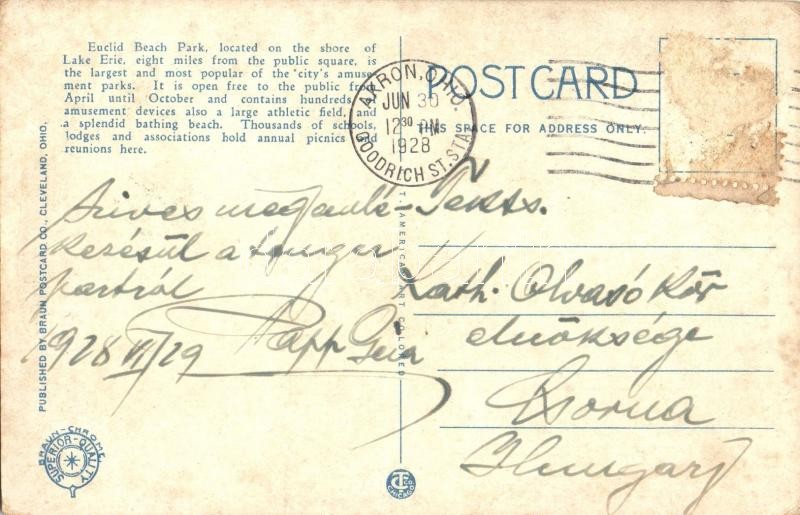 Euclid Beach Park, located on the shore of
Lake Erie, eight miles from the public square, is
the largest and most popular of the city's amuse-
ment parks. It is open free to the public from
April until October and contains hundreds
amusement devices also a large athletic field, and
a splendid bathing beach. Thousands of schools,
lodges and associations hold annual picnics
reunions here.
POST CARD
THIS SPACE FOR ADDRESS ONLY.
AKRON, OHIO.
JUN 30
12 30 PM
1928
GOODRICH ST. STA.
Szives
a tenger
partról
1928 VI/29 Papp Géza
Tekts.
Kath. Olvasó Kör
elnöksége
Csorna
Hungary
PUBLISHED BY BRAUN POSTCARD CO., CLEVELAND, OHIO.
C.T. AMERICAN ART COLORED
BRAUN-CHROME
SUPERIOR-QUALITY
C.T. CO. CHICAGO